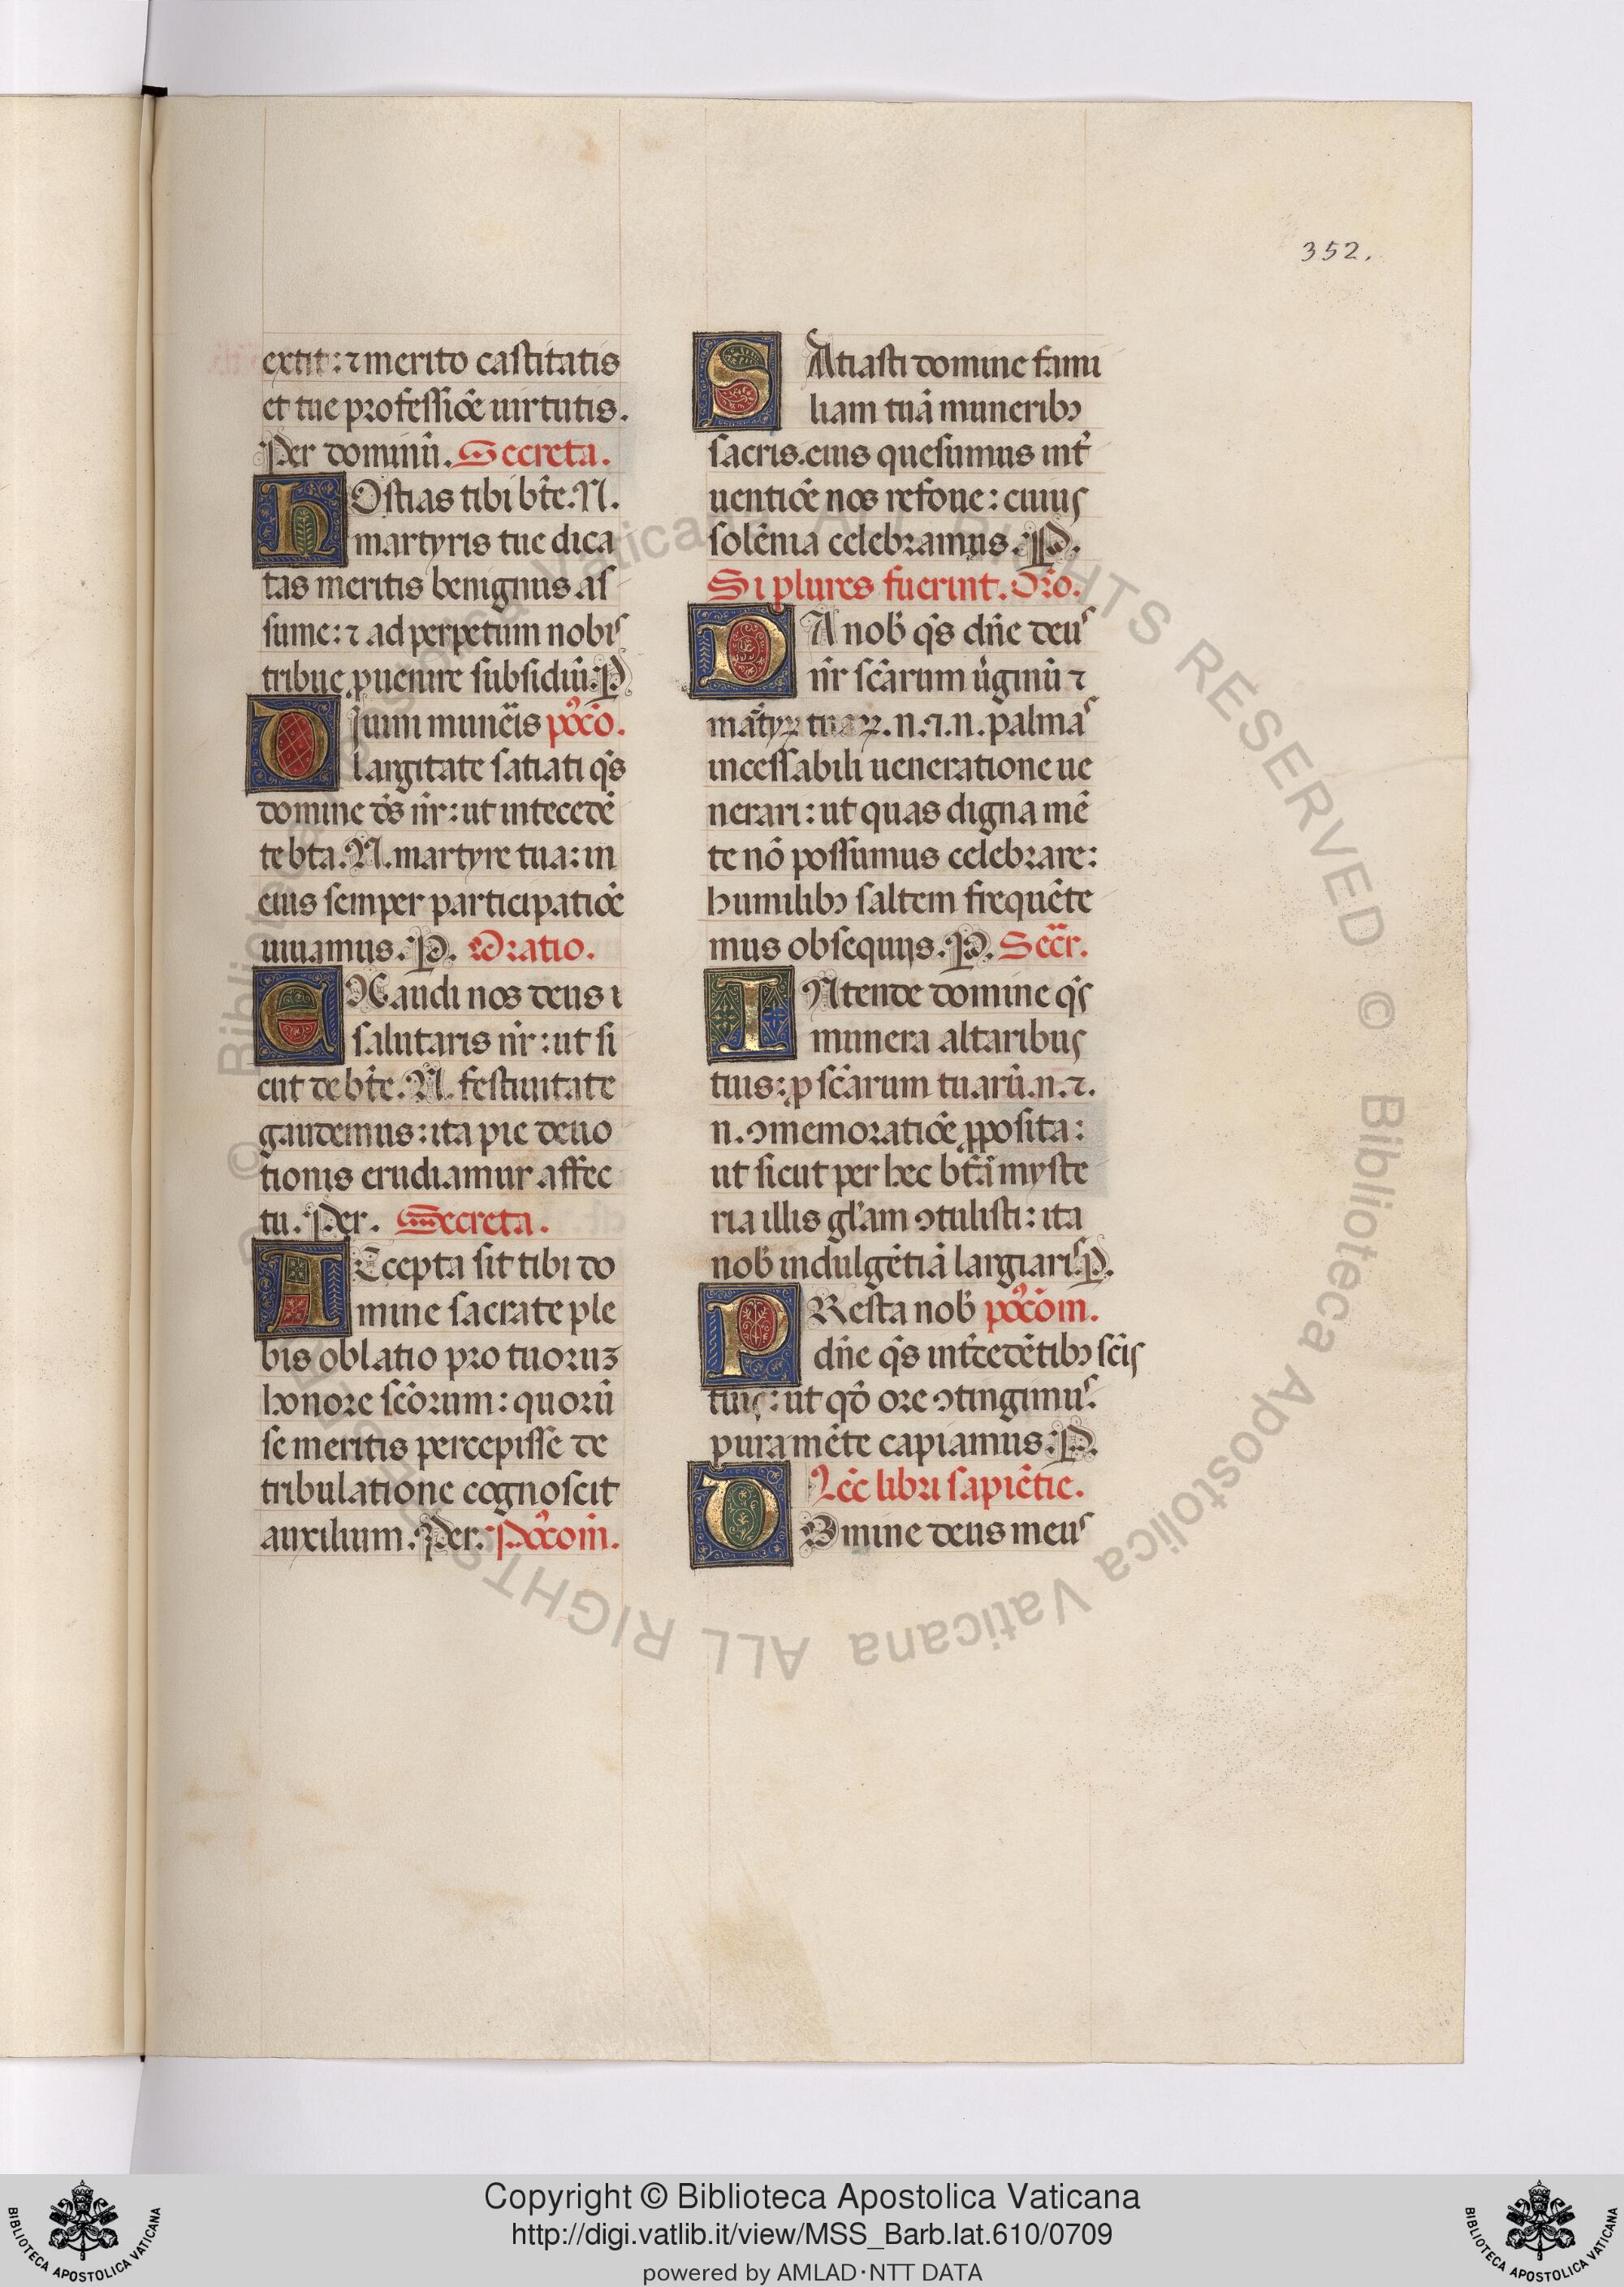 352.
extit: ⁊ merito castitatis
et tue professiōe uirtutis.
Per dominū. Secreta.
HOstias tibi bt̄e. N.
martyris tue dica
tas meritis benignus as
sume: ⁊ ad perpetuum nobis
tribue ꝓuenire subsidiū. P
DIuini mun̄eis po᷒cō.
largitate satiati q̄s
domine d̄s nr̄: ut intecedē
te bta. N. martyre tua: in
eius semper participatiōe
uiuamus. P. Oratio.
EXaudi nos deus
salutaris nr̄: ut si
cut de bt̄e. N. festiuitate
gaudemus: ita pie deuo
tionis erudiamur affec
tu. Per. Secreta.
ACcepta sit tibi do
mine sacrate ple
bis oblatio pro tuoruꝫ
honore sc̄orum: quorū
se meritis percepisse de
tribulatione cognoscit
auxilium. Per. Po᷒com̄.
SAtiasti domine fami
liam tuā muneribꝰ
sacris. eius quesumus int̄
uentiōe nos refoue: cuius
solēnia celebramus. P.
Si plures fuerint. Or̄o.
DA nob̄ q̄s dn̄e deus
nr̄ sc̄arum ūginū ⁊
mārtyꝝ tuaꝝ. n. ⁊. n. palmas
incessabili ueneratione ue
nerari: ut quas digna mē
te nō possumus celebrare:
humilibꝰ saltem frequēte
mus obsequijs. P. Secr̄.
INtende domine q̄s
munera altaribus
tuis: ꝓ sc̄arum tuarū. n. ⁊.
n. ꝯmemoratiōe ꝓposita:
ut sicut per hec bt̄ā myste
ria illis gl̄am ꝯtulisti: ita
nob̄ indulgētiā largiaris. P.
PResta nob̄ po᷒com̄.
dn̄e q̄s int̄cedētibꝰ sc̄is
tuis: ut qō ore ꝯtingimus.
pura mēte capiamus. P.
Lec̄ libri sapiētie.
DOmine deus meus
© Biblioteca Apostolica Vaticana ALL RIGHTS RESERVED © Biblioteca Apostolica Vaticana ALL RIGHTS RESERVED
Copyright © Biblioteca Apostolica Vaticana
http://digi.vatlib.it/view/MSS_Barb.lat.610/0709
powered by AMLAD·NTT DATA
BIBLIOTECA APOSTOLICA VATICANA
BIBLIOTECA APOSTOLICA VATICANA